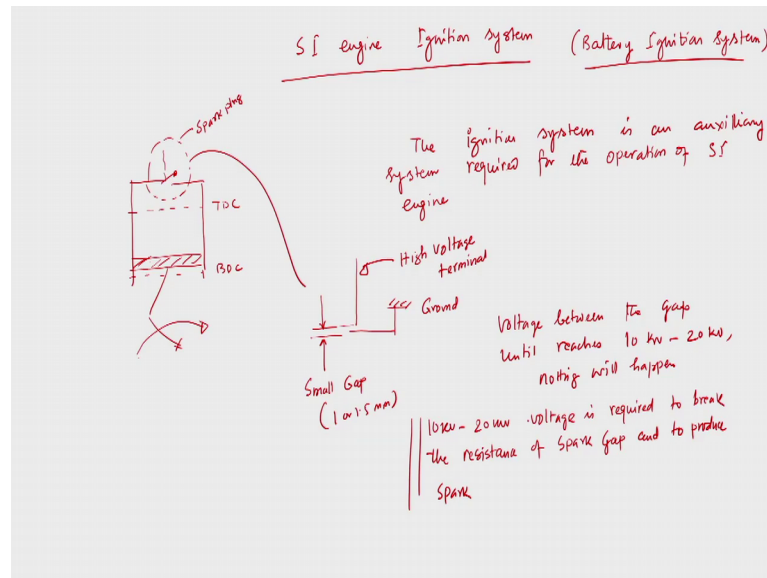 SI engine Ignition system (Battery Ignition System)
Spark plug
TDC
BDC
The ignition system is an auxiliary
system required for the operation of SI
engine
High Voltage
terminal
Ground
Small Gap
(1 or 1.5 mm)
Voltage between the gap
until reaches 10 kv - 20 kv,
notting will happen
10kv - 20kv voltage is required to break
the resistance of spark gap and to produce
spark